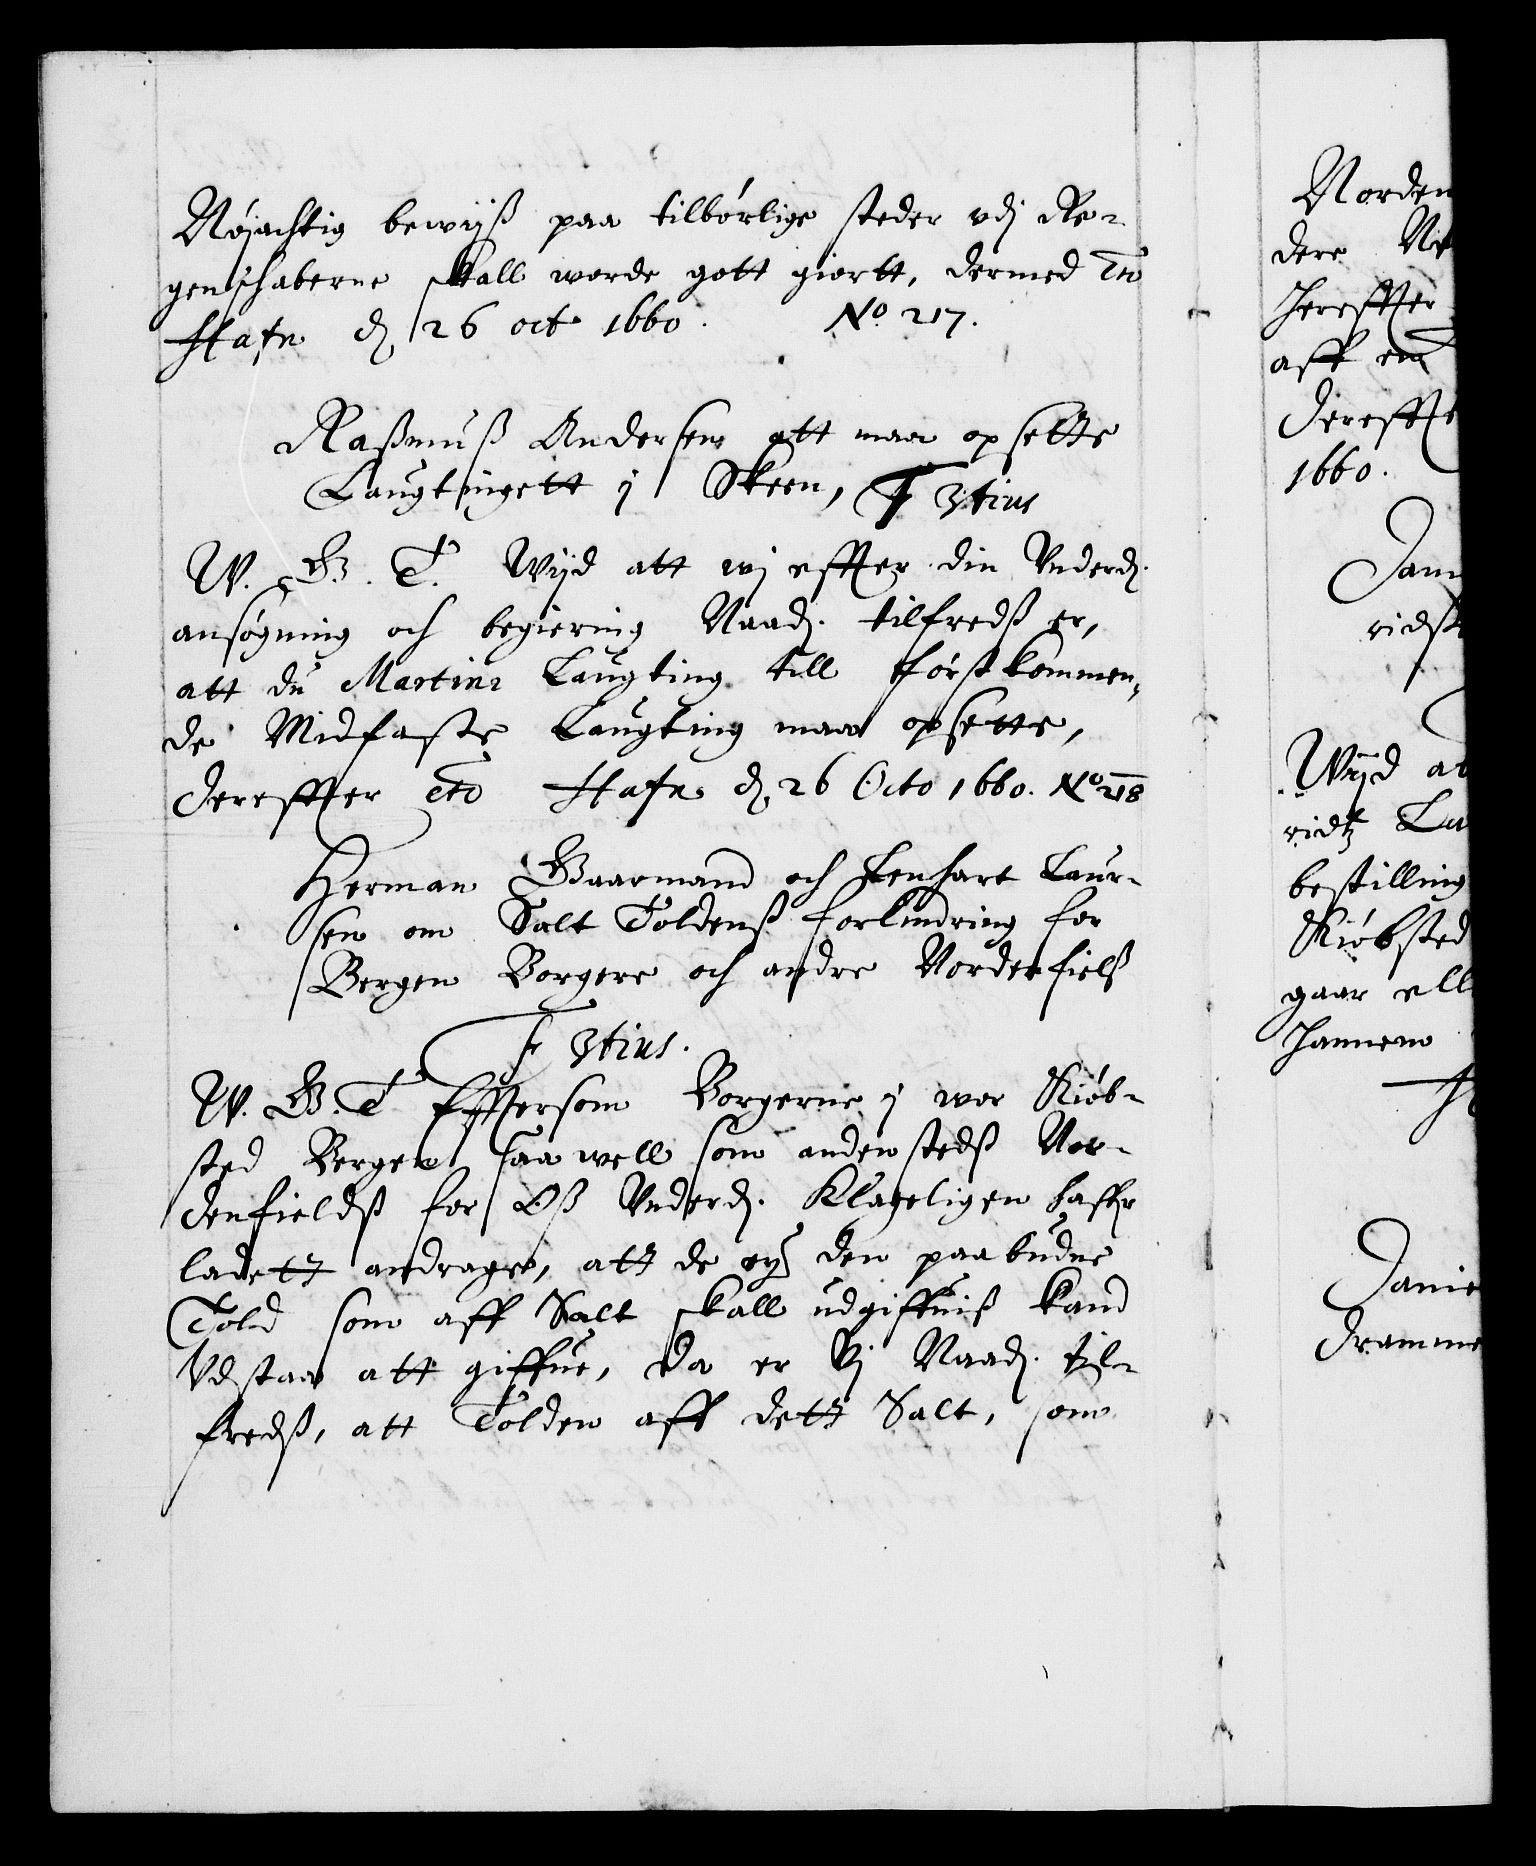 Nøjachtig bewijß paa tilbørlige steder udj Re-
genschaberne skall worde gott giortt, dermed etc
Hafn d. 26 oct 1660. No. 217.
Raßmuß Andersen att maa opsette
Laugtingett j Skeen,
W. G. T. Wijd att wj effter din Underd.
ansøgning och begiering Naad. tilfredß er,
att du Martini Laugting till førstkommen-
de Midfaste Laugting maa opsette,
dereffter etc Hafn d. 26 Octo 1660. No 218
Herman Gaarmand och Lenhart Laur-
sen om Salt Toldenß forlindring for
Bergen Borgere och andre Nordenfielß
W. G. T Efftersom Borgerne j wor Kiøb-
sted Bergen saa well som andenstedß Nor-
denfieldß for Oß Underd. Klageligen haffr
ladett andrage, att de ey den paabudne
Told som aff Salt skall udgiffuiß kand
Udstaa att giffue, da er Vj Naad. til-
fredß, att Tolden aff dett Salt, som
Norden
dere
hereffter
aff
dereffte
1660.
Wijd at
ridtz La
bestilling
Kiøbsted
gaar ell
hannem
Danie
Dramme